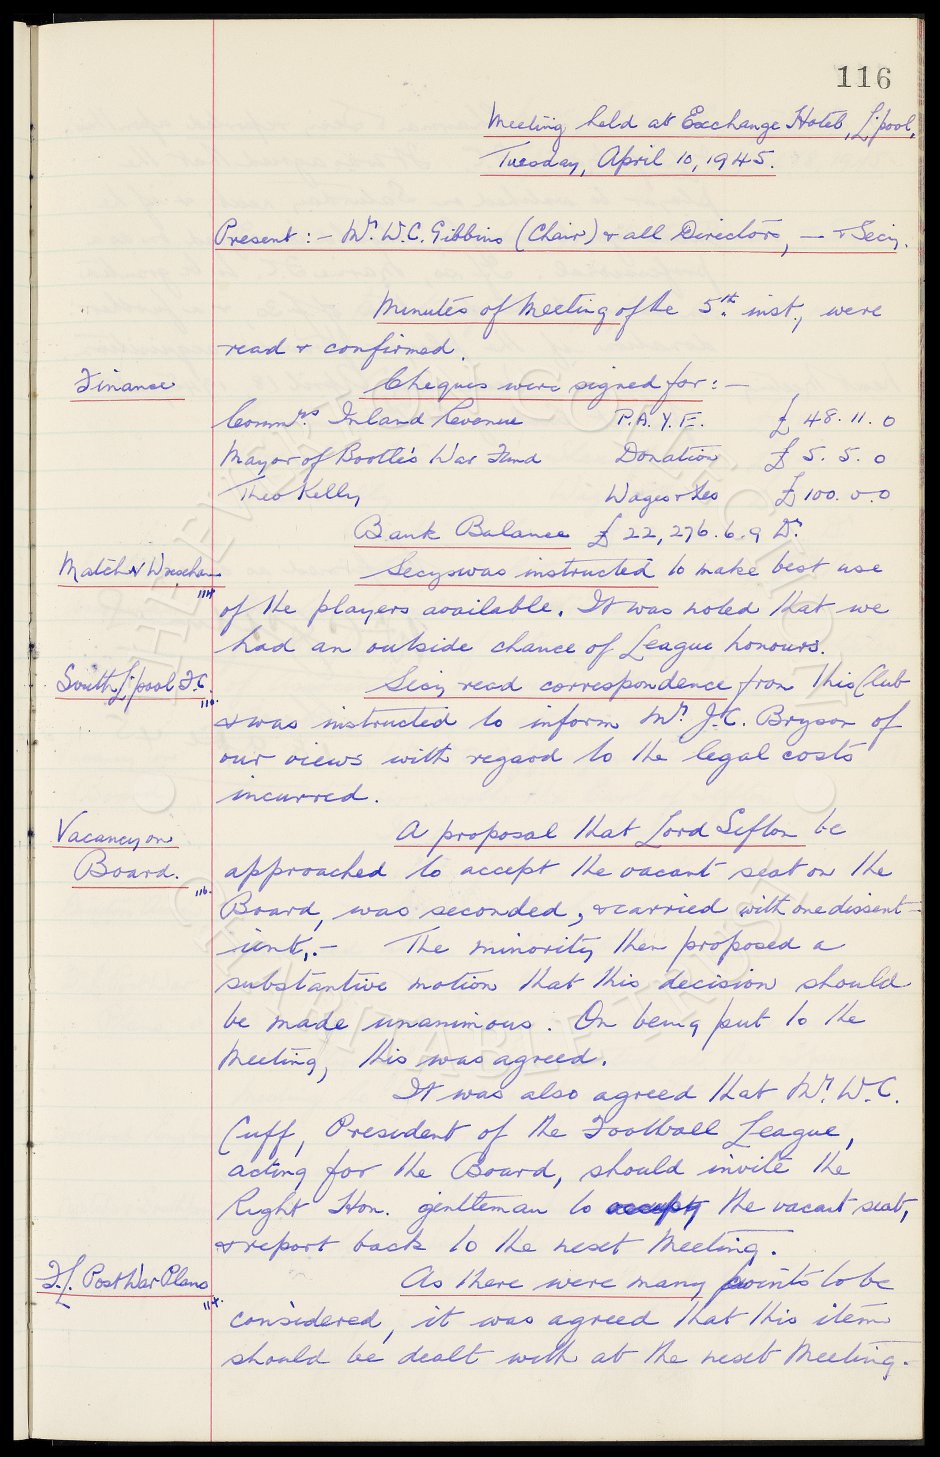 116
Meeting held at Exchange Hotel, L'pool,
Tuesday, April 10, 1945.
Present :- Mr. W.C. Gibbins (Chair) & all Directors, - & Secy.
Minutes of Meeting of the 5th. inst., were
read & confirmed.
Finance
Cheques were signed for :-
Commrs. Inland Revenue P.A.Y.E. £ 48. 11. 0
Mayor of Bootle's War Fund Donation £ 5. 5. 0
Theo Kelly Wages &c £ 100. 0. 0
Bank Balance £ 22,276. 6. 9 Dr.
Match v Wrexham
114
Secy was instructed to make best use
of the players available. It was noted that we
had an outside chance of League honours.
South L'pool F.C.
110.
Secy read correspondence from this Club
& was instructed to inform Mr. J.C. Bryson of
our views with regard to the legal costs
incurred.
Vacancy on
Board.
116.
A proposal that Lord Sefton be
approached to accept the vacant seat on the
Board, was seconded, & carried with one dissent-
ient,.- The minority then proposed a
substantive motion that this decision should
be made unanimous. On being put to the
Meeting, this was agreed.
It was also agreed that Mr. W.C.
Cuff, President of the Football League,
acting for the Board, should invite the
Right Hon. gentleman to the vacant seat,
& report back to the next Meeting.
F.L. Post War Plans
114.
As there were many points to be
considered, it was agreed that this item
should be dealt with at the next Meeting.
THE EVERTON COLLECTION
CHARITABLE TRUST